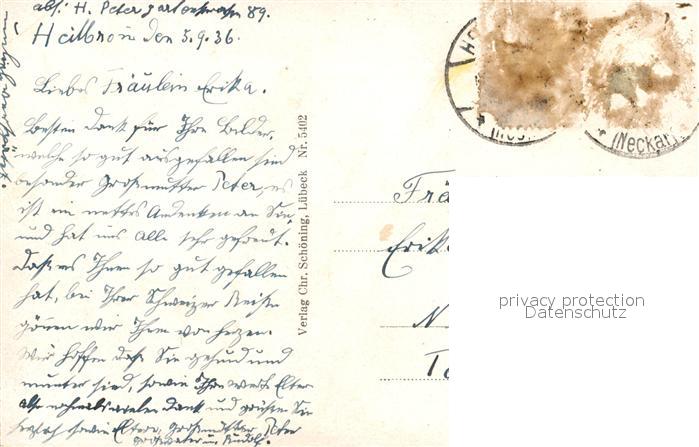 abs: H. Peter 89.
Heilbronn den 5.9.36.
Liebes Fräulein Erika.
Besten Dank für Ihre Bilder,
welche so gut ausgefallen sind
besonder Großmutter Peter, es
ist ein nettes Andenken an Sie
und hat uns alle sehr gefreut.
Daß es Ihnen so gut gefallen
hat, bei Ihrer Schweizer Reise
gönnen wir Ihnen von herzen.
Wir hoffen daß Sie gesund und
munter sind, sowie Ihre Eltern
also nochmals vielen Dank und grüßen Sie
herzlich sowie Eltern, Großmutter Peter
Großvater u. Rudolf.
Verlag Chr. Schöning, Lübeck Nr. 5402
(Neckar)
Frä
Erik
N
privacy protection
Datenschutz